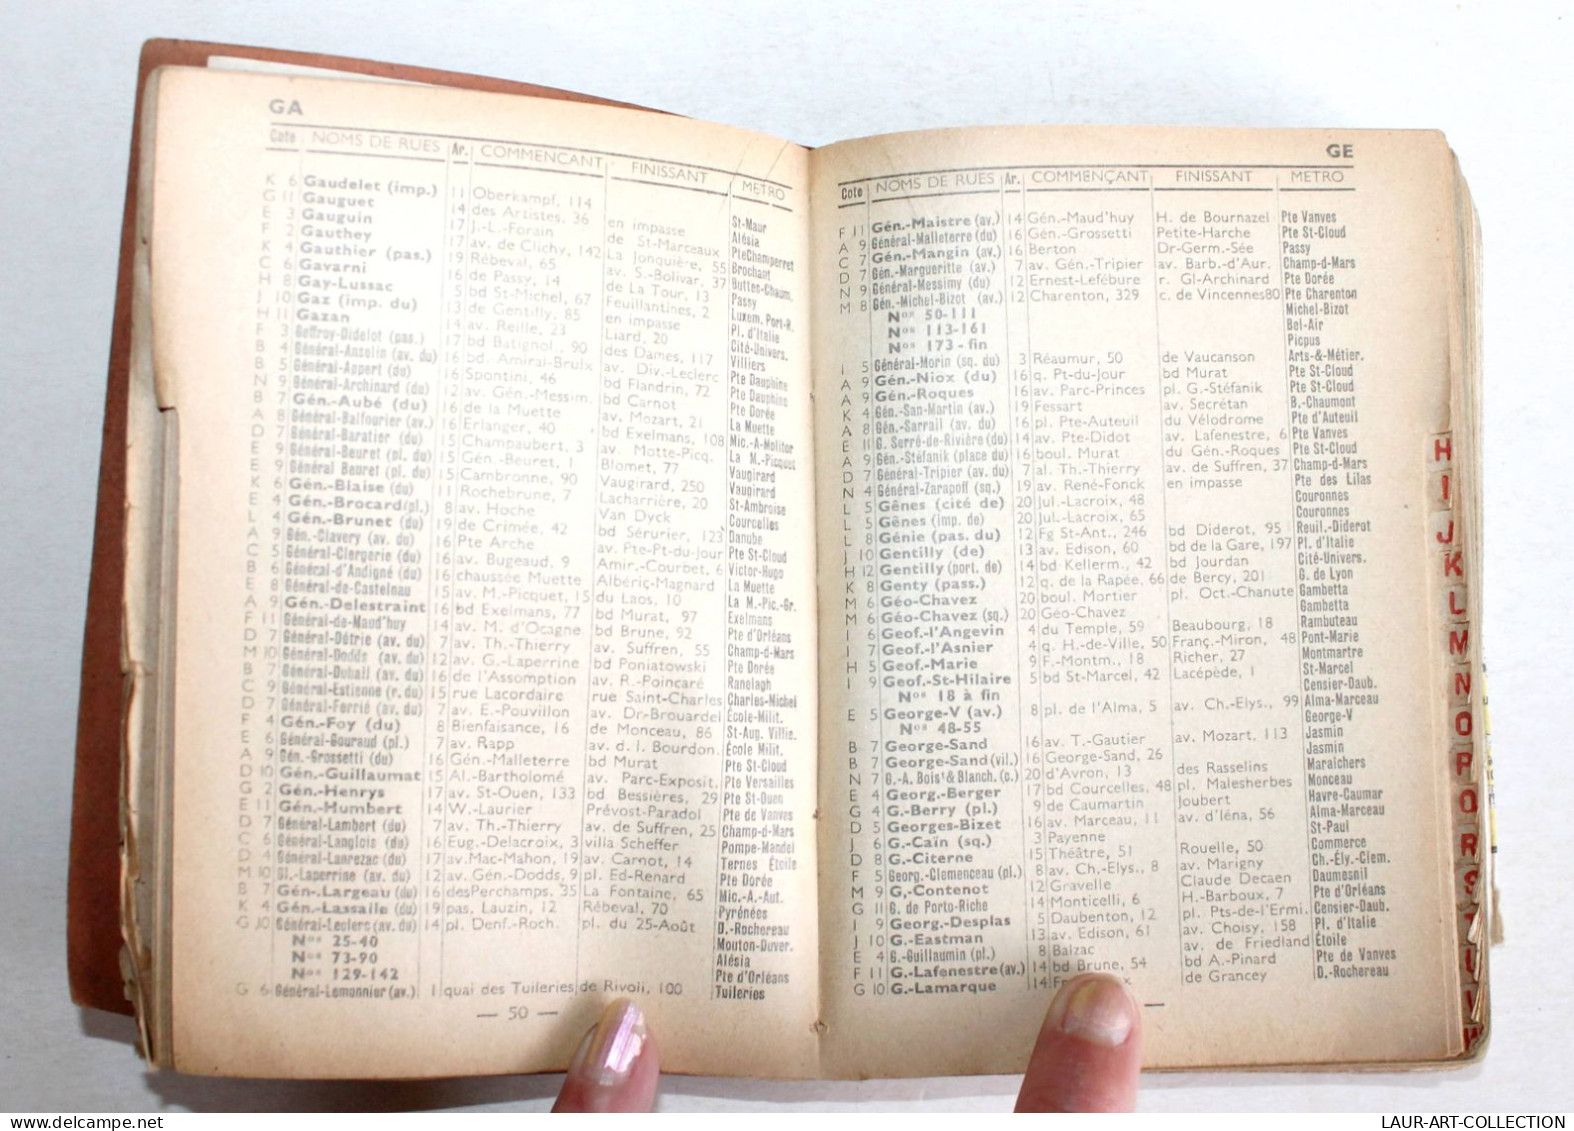 GA
Cote NOMS DE RUES Ar. COMMENÇANT FINISSANT METRO
K 6 Gaudelet (imp.) 11 Oberkampf, 114 en impasse St-Maur
G 11 Gauguet 14 des Artistes, 36 de St-Marceaux Alésia
E 3 Gauguin 17 J.-L.-Forain La Jonquière, 55 Pte Champerret
F 2 Gauthey 17 av. de Clichy, 142 av. S.-Bolivar, 37 Brochant
K 4 Gauthier (pas.) 19 Rébeval, 65 de La Tour, 13 Buttes-Chaum.
C 6 Gavarni 16 de Passy, 14 Feuillantines, 2 Passy
H 8 Gay-Lussac 5 bd St-Michel, 67 en impasse Luxem. Port-R.
I 10 Gaz (imp. du) 13 de Gentilly, 85 Liard, 20 Pl. d'Italie
H 11 Gazan 14 av. Reille, 23 des Dames, 117 Cité-Univers.
F 3 Geffroy-Didelot (pas.) 17 bd Batignol., 90 av. Div.-Leclerc Villiers
B 4 Général-Anselin (av. du) 16 bd. Amiral-Bruix bd Flandrin, 72 Pte Dauphine
B 5 Général-Appert (du) 16 Spontini, 46 bd Carnot Pte Dauphine
N 9 Général-Archinard (du) 12 av. Gén.-Messim. av. Mozart, 21 Pte Dorée
B 7 Gén.-Aubé (du) 16 de la Muette bd Exelmans, 108 La Muette
A 8 Général-Balfourier (av.) 16 Erlanger, 40 av. Motte-Picq. Mic.-A-Molitor
D 7 Général-Baratier (du) 15 Champaubert, 3 Blomet, 77 La M.-Picquet
E 9 Général-Beuret (pl. du) 15 Gén.-Beuret, 1 Vaugirard, 250 Vaugirard
E 9 Général Beuret (du) 15 Cambronne, 90 Lacharrière, 20 Vaugirard
K 6 Gén.-Blaise (du) 11 Rochebrune, 7 Van Dyck St-Ambroise
E 4 Gén.-Brocard (pl.) 8 av. Hoche bd Sérurier, 123 Courcelles
L 4 Gén.-Brunet (du) 19 de Crimée, 42 av. Pte-Pt-du-Jour Danube
A 9 Gén.-Clavery (av. du) 16 Pte Arche Amir.-Courbet, 6 Pte St-Cloud
C 5 Général-Clergerie (du) 16 av. Bugeaud, 9 Albéric-Magnard Victor-Hugo
B 6 Général-d'Andigné (du) 16 chaussée Muette du Laos, 10 La Muette
E 8 Général-de-Castelnau 15 av. M.-Picquet, 15 bd Murat, 97 La M.-Pic.-Gr.
A 9 Gén.-Delestraint 16 bd Exelmans, 77 bd Brune, 92 Exelmans
F 11 Général-de-Maud'huy 14 av. M. d'Ocagne av. Suffren, 55 Pte d'Orléans
D 7 Général-Détrie (av. du) 7 av. Th.-Thierry bd Poniatowski Champ-d-Mars
M 10 Général-Dodds (av. du) 12 av. G.-Laperrine av. R.-Poincaré Pte Dorée
B 7 Général-Dubail (av. du) 16 de l'Assomption rue Saint-Charles Ranelagh
C 9 Général-Estienne (r. du) 15 rue Lacordaire av. Dr-Brouardel Charles-Michel
D 7 Général-Ferrié (av. du) 7 av. E.-Pouvillon de Monceau, 86 École-Milit.
F 4 Gén.-Foy (du) 8 Bienfaisance, 16 av. d. l. Bourdon. St-Aug. Villie.
E 6 Général-Gouraud (pl.) 7 av. Rapp bd Murat École Milit.
A 9 Gén.-Grossetti (du) 16 Gén.-Malleterre av. Parc-Exposit. Pte St-Cloud
D 10 Gén.-Guillaumat 15 Al.-Bartholomé bd Bessières, 29 Pte Versailles
G 2 Gén.-Henrys 17 av. St-Ouen, 133 Prévost-Paradol Pte St-Ouen
E 11 Gén.-Humbert 14 W.-Laurier av. de Suffren, 25 Pte de Vanves
D 7 Général-Lambert (du) 7 av. Th.-Thierry villa Scheffer Champ-d-Mars
C 6 Général-Langlois (du) 16 Eug.-Delacroix, 3 av. Carnot, 14 Pompe-Mandel
D 4 Général-Lanrezac (du) 17 av. Mac-Mahon, 19 pl. Ed-Renard Ternes Étoile
M 10 Gl.-Laperrine (av. du) 12 av. Gén.-Dodds, 9 La Fontaine, 65 Pte Dorée
B 7 Gén.-Largeau (du) 16 des Perchamps, 35 Rébeval, 70 Mic.-A.-Aut.
K 4 Gén.-Lassalle (du) 19 pas. Lauzin, 12 pl. du 25-Août Pyrénées
G 10 Général-Leclerc (av. du) 14 pl. Denf.-Roch. D.-Rochereau
Nos 25-40 Mouton-Duver.
Nos 73-90 Alésia
Nos 129-142 Pte d'Orléans
G 6 Général-Lemonnier (av.) 1 quai des Tuileries de Rivoli, 100 Tuileries
— 50 —
GE
Cote NOMS DE RUES Ar. COMMENÇANT FINISSANT METRO
F 11 Gén.-Maistre (av.) 14 Gén.-Maud'huy H. de Bournazel Pte Vanves
A 9 Général-Malleterre (du) 16 Gén.-Grossetti Petite-Harche Pte St-Cloud
C 7 Gén.-Mangin (av.) 16 Berton Dr-Germ.-Sée Passy
D 7 Gén.-Margueritte (av.) 7 av. Gén.-Tripier av. Barb.-d'Aur. Champ-d-Mars
N 9 Général-Messimy (du) 12 Ernest-Lefébure r. Gl-Archinard Pte Dorée
M 8 Gén.-Michel-Bizot (av.) 12 Charenton, 329 c. de Vincennes 80 Pte Charenton
Nos 50-111 Michel-Bizot
Nos 113-161 Bel-Air
Nos 173-fin Picpus
I 5 Général-Morin (sq. du) 3 Réaumur, 50 de Vaucanson Arts-&-Métier.
A 9 Gén.-Niox (du) 16 q. Pt-du-Jour bd Murat Pte St-Cloud
A 9 Gén.-Roques 16 av. Parc-Princes pl. G.-Stéfanik Pte St-Cloud
K 4 Gén.-San-Martin (av.) 19 Fessart av. Secrétan B.-Chaumont
A 8 Gén.-Sarrail (av. du) 16 pl. Pte-Auteuil du Vélodrome Pte d'Auteuil
E 11 G. Serré-de-Rivière (du) 14 av. Pte-Didot av. Lafenestre, 6 Pte Vanves
A 9 Gén.-Stéfanik (place du) 16 boul. Murat du Gén.-Roques Pte St-Cloud
D 7 Général-Tripier (av. du) 7 al. Th.-Thierry av. de Suffren, 37 Champ-d-Mars
N 4 Général-Zarapoff (sq.) 19 av. René-Fonck en impasse Pte des Lilas
L 5 Gênes (cité de) 20 Jul.-Lacroix, 48 Couronnes
L 5 Gênes (imp. de) 20 Jul.-Lacroix, 65 Couronnes
L 8 Génie (pas. du) 12 Fg St-Ant., 246 bd Diderot, 95 Reuil.-Diderot
J 10 Gentilly (de) 13 av. Edison, 60 bd de la Gare, 197 Pl. d'Italie
H 12 Gentilly (port. de) 14 bd Kellerm., 42 bd Jourdan Cité-Univers.
K 8 Genty (pass.) 12 q. de la Rapée, 66 de Bercy, 201 G. de Lyon
M 6 Géo-Chavez 20 boul. Mortier pl. Oct.-Chanute Gambetta
M 6 Géo-Chavez (sq.) 20 Géo-Chavez Gambetta
I 6 Geof.-l'Angevin 4 du Temple, 59 Beaubourg, 18 Rambuteau
I 7 Geof.-l'Asnier 4 q. H.-de-Ville, 50 Franç.-Miron, 48 Pont-Marie
H 5 Geof.-Marie 9 F.-Montm., 18 Richer, 27 Montmartre
I 9 Geof.-St-Hilaire 5 bd St-Marcel, 42 Lacépède, 1 St-Marcel
Nos 18 à fin Censier-Daub.
E 5 George-V (av.) 8 pl. de l'Alma, 5 av. Ch.-Elys., 99 Alma-Marceau
Nos 48-55 George-V
B 7 George-Sand 16 av. T.-Gautier av. Mozart, 113 Jasmin
B 7 George-Sand (vil.) 16 George-Sand, 26 Jasmin
N 7 G.-A. Boist & Blanch. (c.) 20 d'Avron, 13 des Rasselins Maraichers
E 4 Georg.-Berger 17 bd Courcelles, 48 pl. Malesherbes Monceau
G 4 G.-Berry (pl.) 9 de Caumartin Joubert Havre-Caumar
D 5 Georges-Bizet 16 av. Marceau, 11 av. d'Iéna, 56 Alma-Marceau
J 6 G.-Caïn (sq.) 3 Payenne St-Paul
D 8 G.-Citerne 15 Théâtre, 51 Rouelle, 50 Commerce
F 5 Georg.-Clemenceau (pl.) 8 av. Ch.-Elys., 8 av. Marigny Ch.-Ély.-Clem.
M 9 G,-Contenot 12 Gravelle Claude Decaen Daumesnil
G 11 G. de Porto-Riche 14 Monticelli, 6 H.-Barboux, 7 Pte d'Orléans
I 9 Georg.-Desplas 5 Daubenton, 12 pl. Pts-de-l'Ermi. Censier-Daub.
J 10 G.-Eastman 13 av. Edison, 61 av. Choisy, 158 Pl. d'Italie
E 4 G.-Guillaumin (pl.) 8 Balzac av. de Friedland Étoile
F 11 G.-Lafenestre (av.) 14 bd Brune, 54 bd A.-Pinard Pte de Vanves
G 10 G.-Lamarque 14 de Grancey D.-Rochereau
H
I
J
K
L
M
N
O
P
Q
R
S
T
U
V
W
delcampe.net
LAUR-ART-COLLECTION